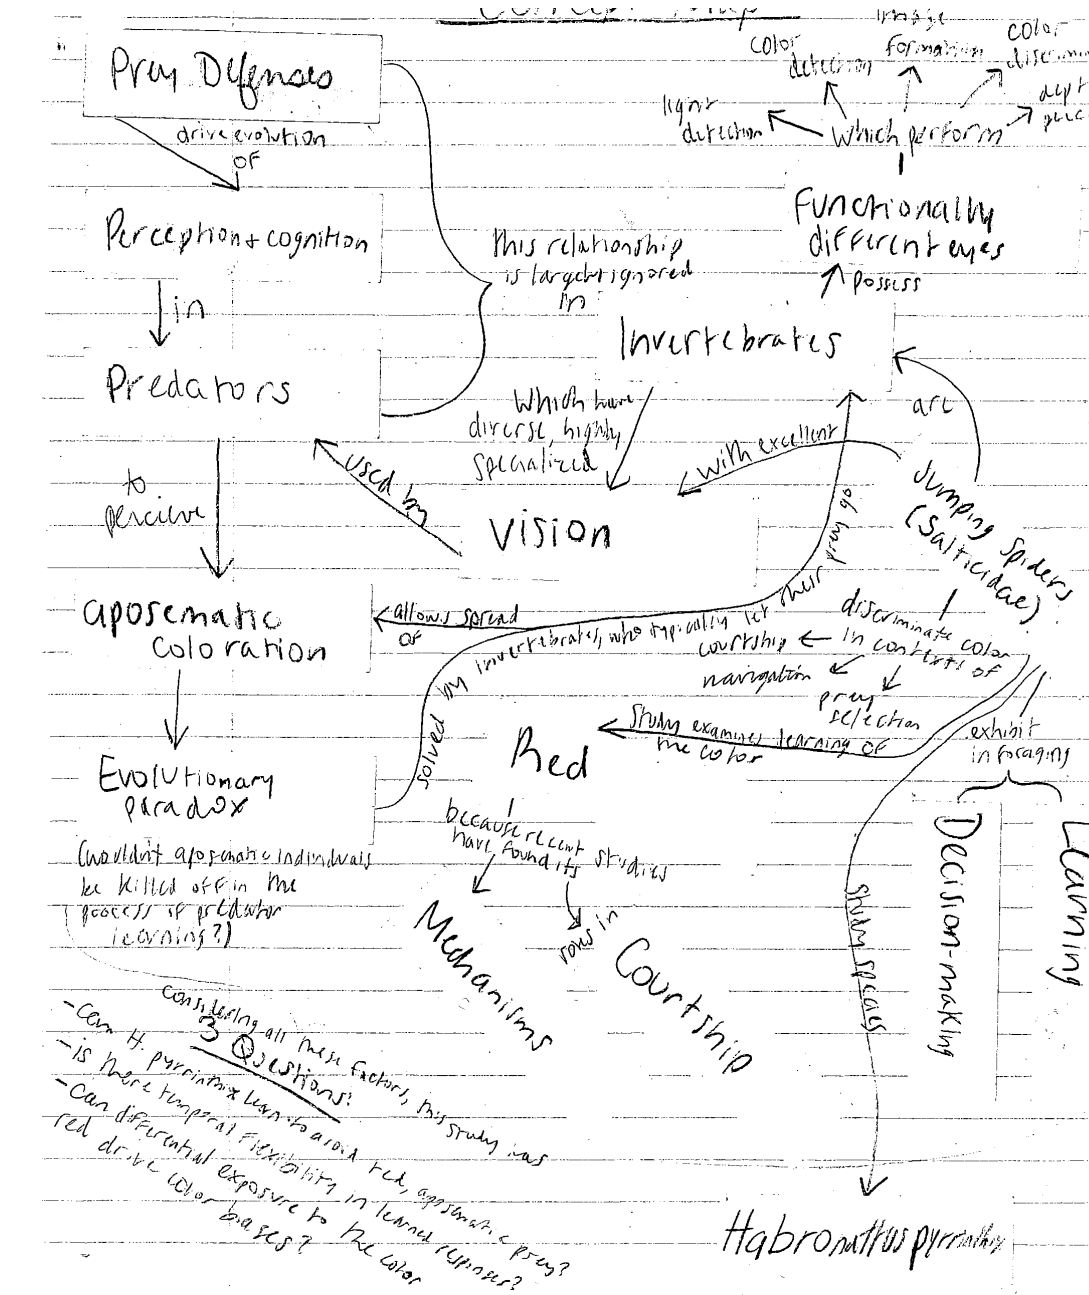 Concept Map
Prey Defenses
drive evolution
OF
Perception + cognition
in
Predators
to
percieve
aposematic
coloration
Evolutionary
paradox
(wouldn't aposematic individuals
be killed off in the
process of predator
learning?)
this relationship
is largely ignored
in
Invertebrates
possess
Functionally
different eyes
which perform
light
detection
color
detection
image
formation
color
discrimi
dept
perc
which have
diverse, highly
specialized
vision
used by
with excellent
are
Jumping Spiders
(Salticidae)
discriminate color
in contexts of
courtship
navigation
prey
selection
allows spread
of
solved by invertebrates, who typically let their prey go
Study examines learning of
the color
Red
because recent studies
have found its
Mechanisms
rows in
Courtship
exhibit
in foraging
Decision-making
Learning
Study species
Habronattus pyrrithrix
Considering all these factors, this study has
3 Questions:
- Can H. pyrrithrix learn to avoid red, aposematic prey?
- is there temporal flexibility in learned responses?
- Can differential exposure to the color
red drive color
biases?